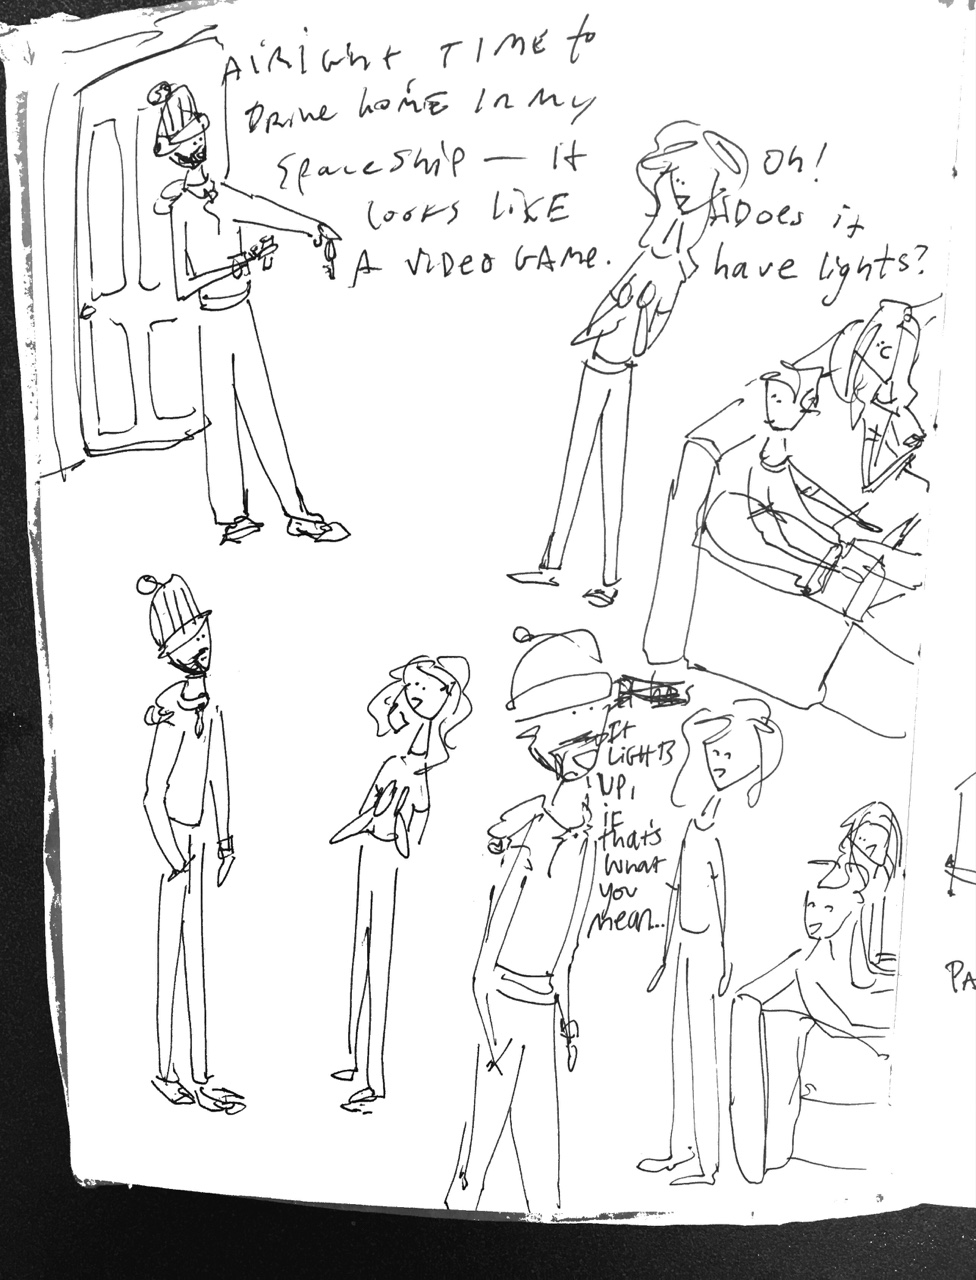 AlRight TIME to
DRIVE hOME IN MY
SpaceShip — it
looks LIKE
A VIDEO GAME.
Oh!
Does it
have lights?
It
LIGHTS
UP,
if
that's
what
you
mean...
PA